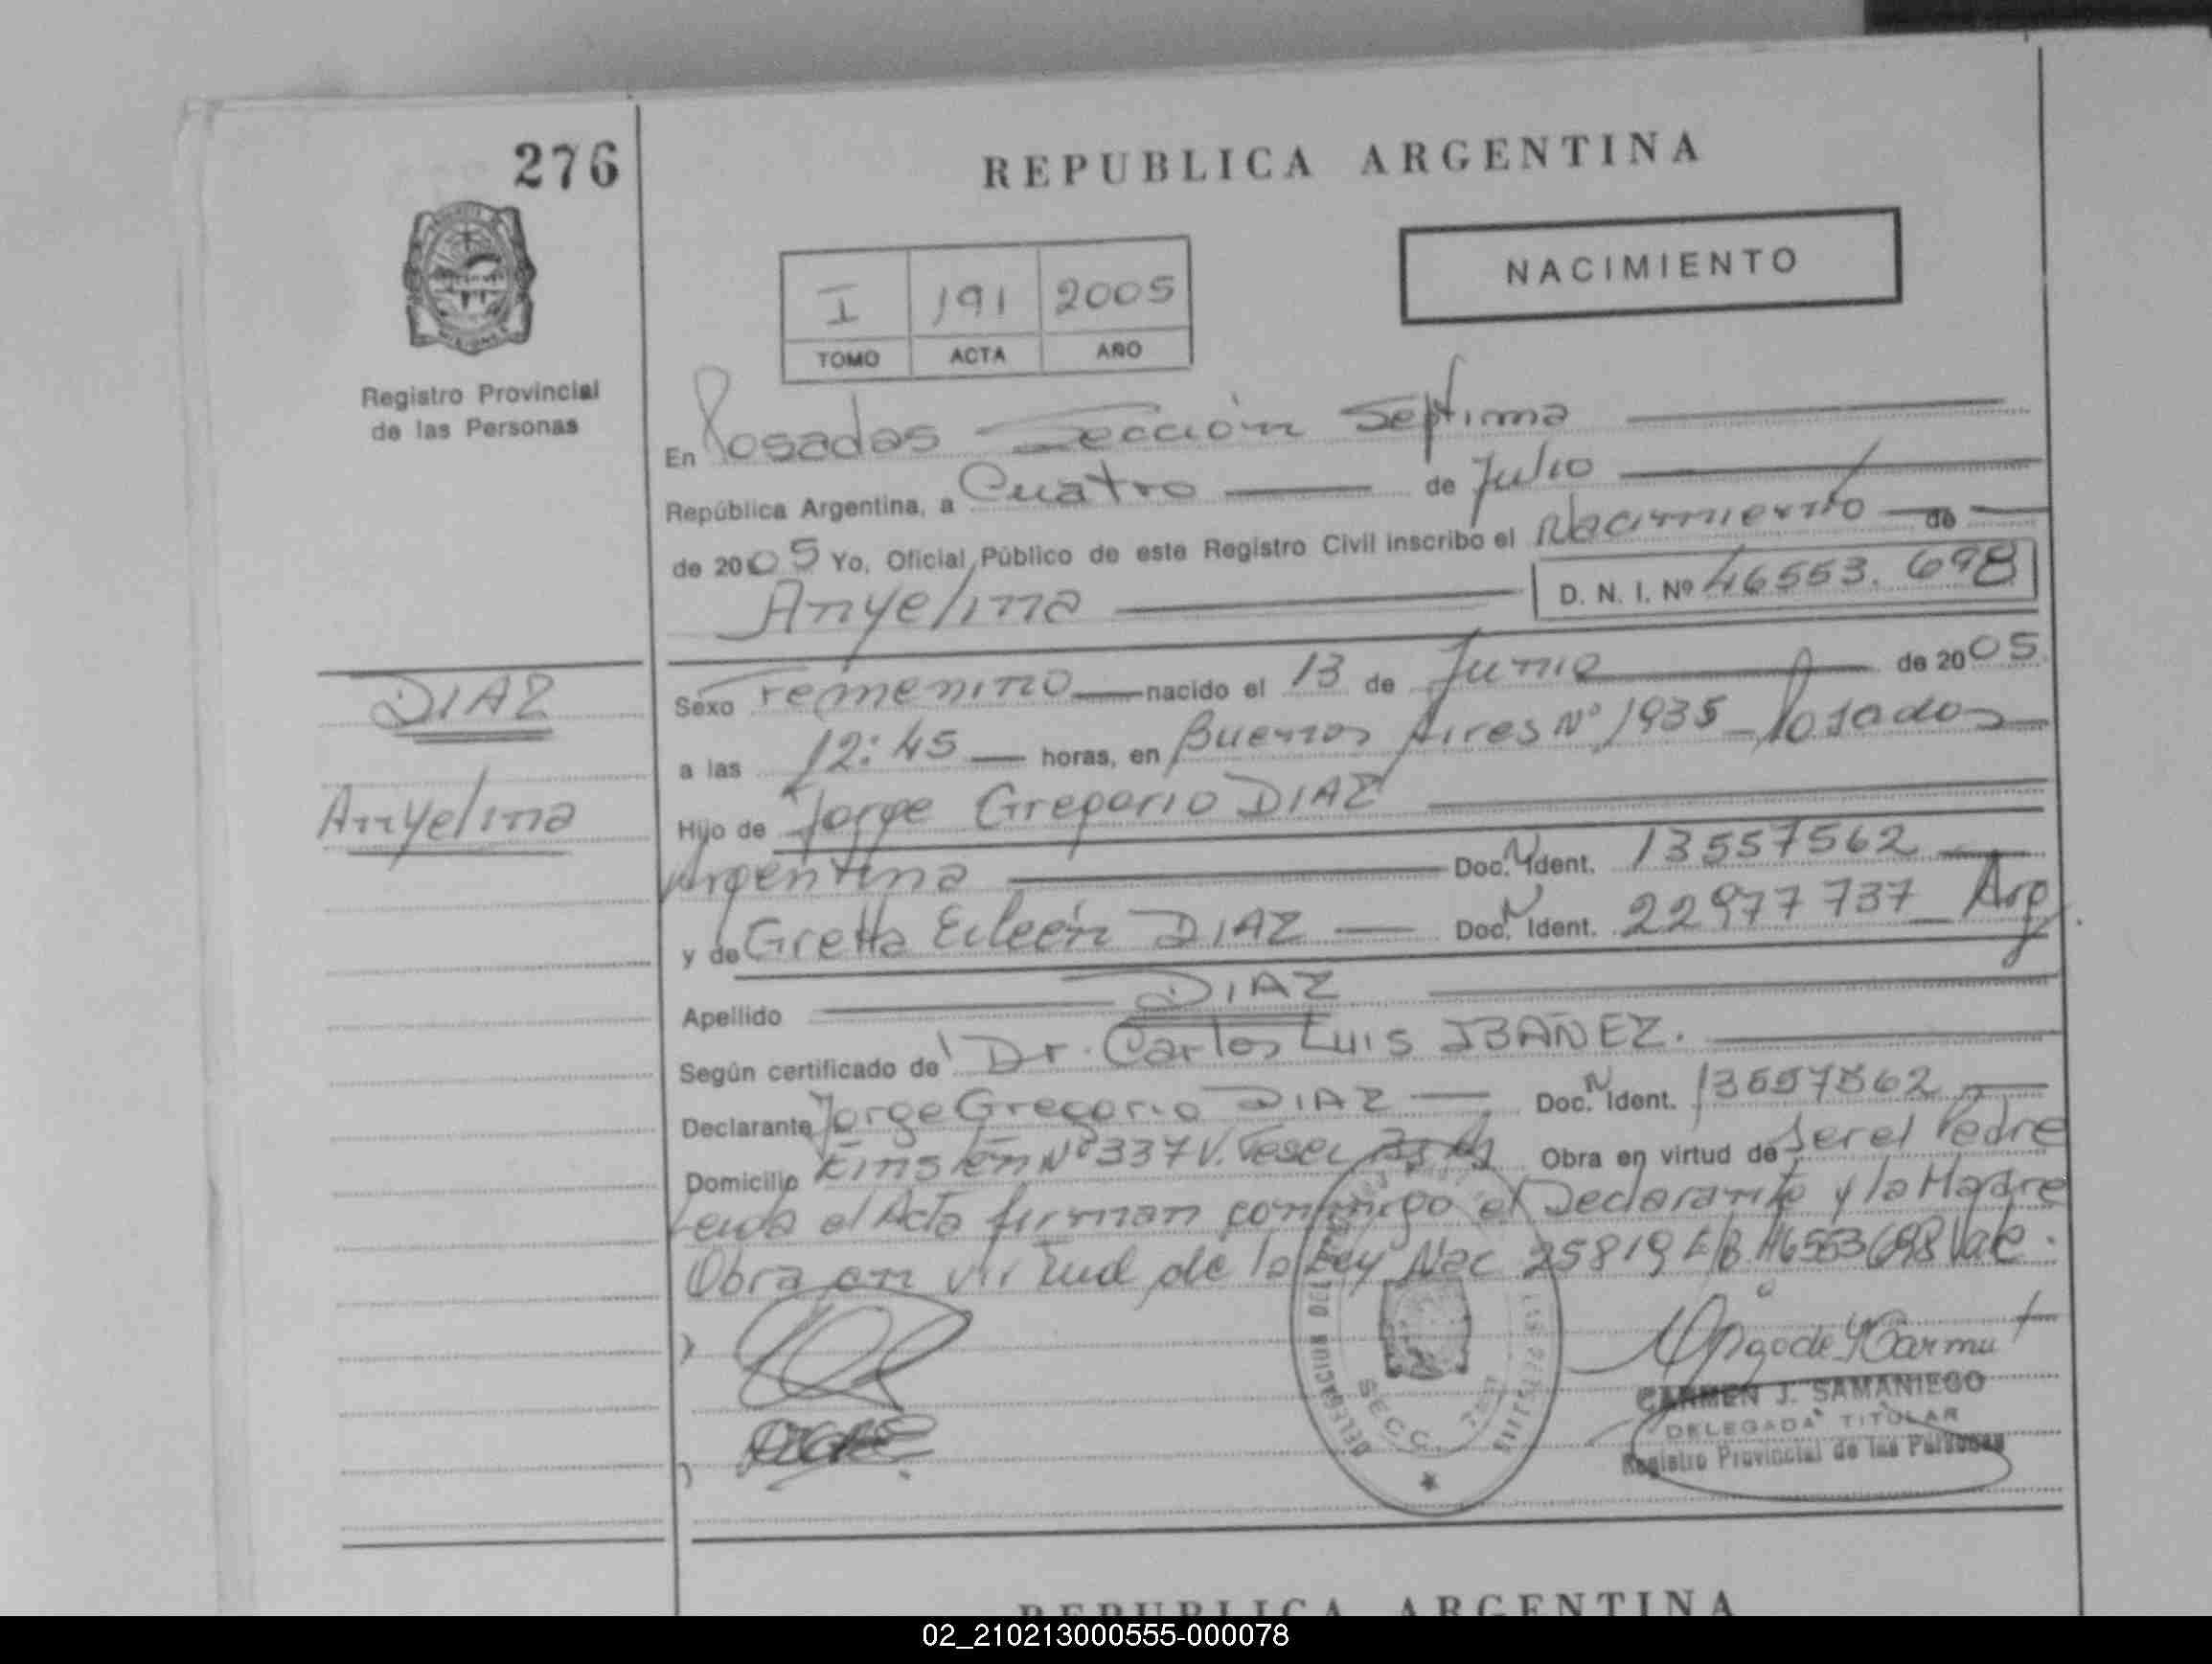 276
REPUBLICA ARGENTINA
NACIMIENTO
I 191 2005
TOMO ACTA AÑO
Registro Provincial
de las Personas
En Posadas Sección Septima
República Argentina, a Cuatro de Julio
de 2005 Yo, Oficial Público de este Registro Civil inscribo el Nacimiento de
Anyelina D. N. I. Nº 46553.698
DIAZ
Anyelina
Sexo Femenino nacido el 13 de Junio de 2005
a las 12:45 horas, en Buenos Aires Nº 1935 - Posadas
Hijo de Jorge Gregorio DIAZ
Argentina Doc. N Ident. 13557562
y de Gretta Eileén DIAZ Doc. N Ident. 22977737 Arg
Apellido DIAZ
Según certificado de Dr. Carlos Luis IBAÑEZ.
Declarante Jorge Gregorio DIAZ Doc. N Ident. 13557562
Domicilio Nº 337 V. Obra en virtud de Ser el Padre
Leida el Acta firman conmigo el Declarante y la Madre
Obra en virtud de la Ley Nac 25819 E/B 46553698 Vale.
DELEGACION DEL
SECC. 7
CARMEN J. SAMANIEGO
DELEGADA TITULAR
Registro Provincial de las Personas
REPUBLICA ARGENTINA
02_210213000555-000078